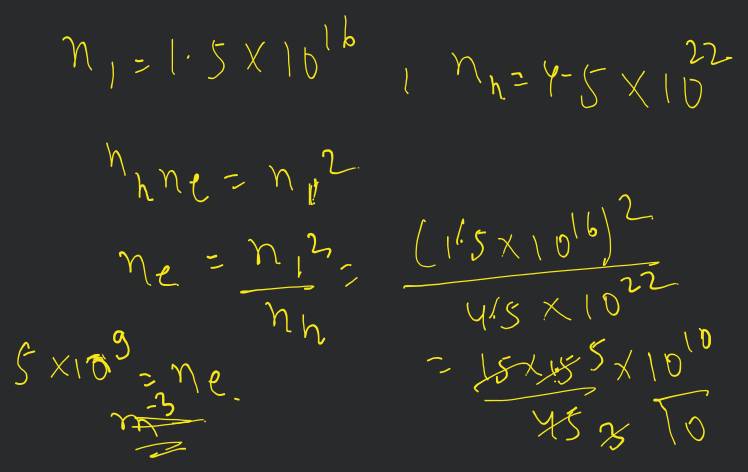 n₁ = 1.5 × 10¹⁶ , n_h = 4.5 × 10²²
n_h n_e = n₁²
n_e = n₁² / n_h = (1.5 × 10¹⁶)² / 4.5 × 10²²
= 15 × 15 5 × 10¹⁰ / 45 3 10
5 × 10⁹ = n_e.
m⁻³